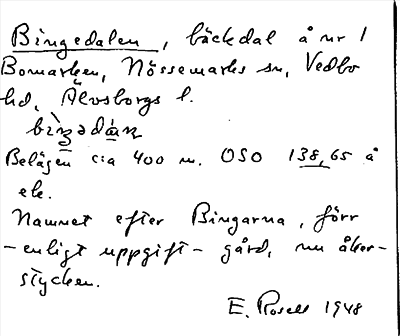 Bingedalen, bäckdal å nr 1
Bomarken, Nössemarks sn, Vedbo
hd, Älvsborgs l.
bìŋədáṉ
Belägen c:a 400 m. OSO 138,65 å
ek.
Namnet efter Bingarna, förr
- enligt uppgift - gård, nu åker-
stycken.
E. Rosell 1948